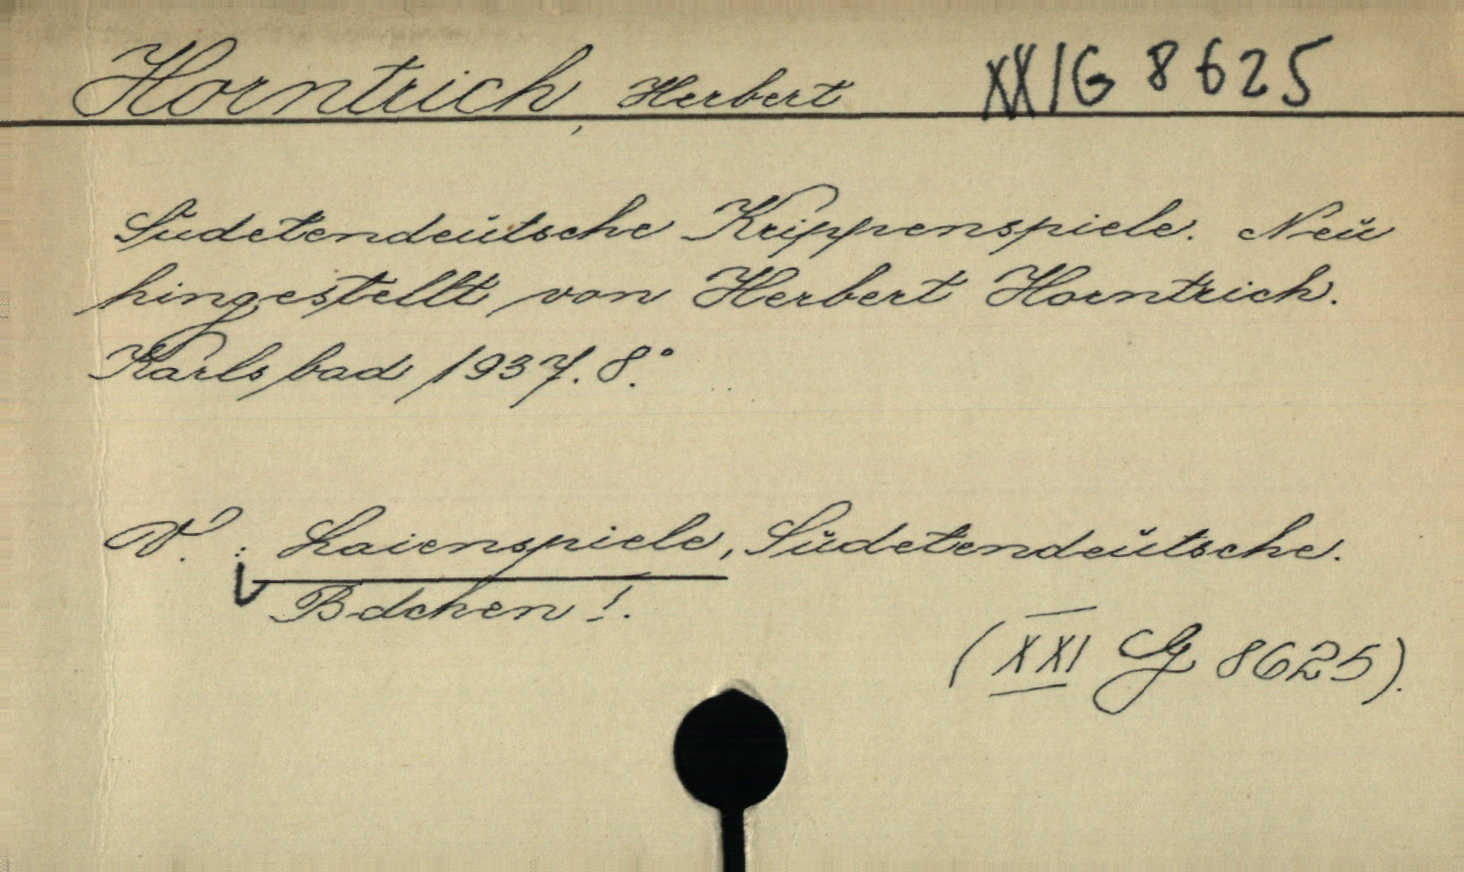 Horntrich, Herbert XXIG 8625
Sudetendeutsche Krippenspiele. Neu
hingestellt von Herbert Horntrich.
Karlsbad 1937. 8.°
V. : Laienspiele, Sudetendeutsche.
Bdchen !.
(XXI G 8625).